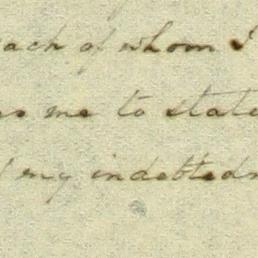 each of whom I
me to state
my indebted